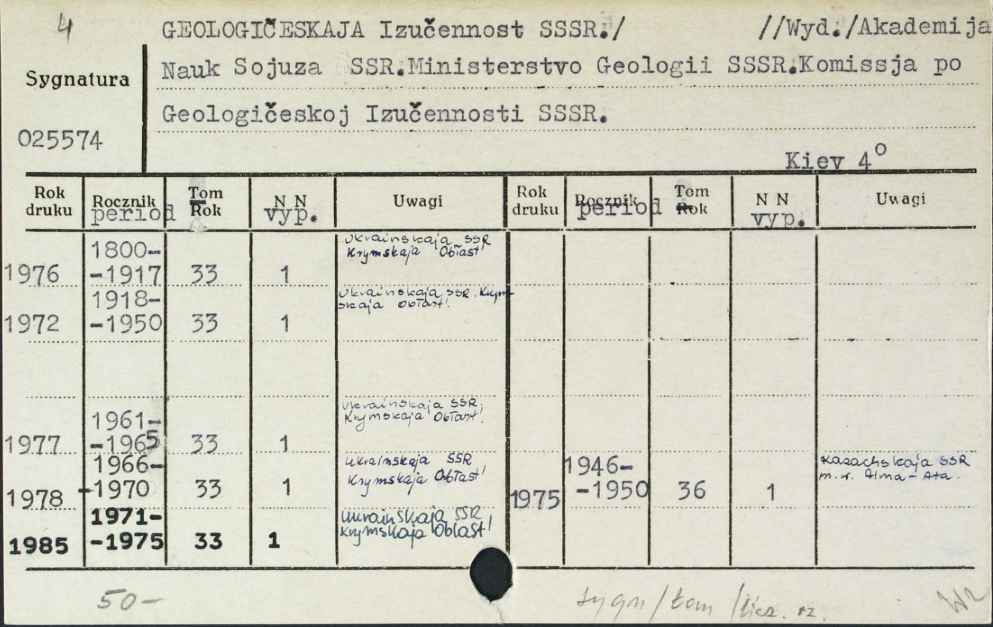 4
GEOLOGIČESKAJA Izučennost SSSR./ //Wyd./Akademija
Sygnatura
Nauk Sojuza SSR.Ministerstvo Geologii SSSR.Komissja po
Geologičeskoj Izučennosti SSSR.
025574
Kiev 4°
Rok druku Rocznik period Tom Rok N N vyp. Uwagi Rok druku Rocznik period Tom Rok N N vyp. Uwagi
1800- Ukrainskaja SSR
1976 -1917 33 1 Krymskaja Obłast'
1918- Ukrainskaja SSR. Krym-
1972 -1950 33 1 skaja Obłast'.
1961- Ukrainskaja SSR,
1977 -1965 33 1 Krymskaja Obłast'.
1966- Ukrainskaja SSR 1946- Kazachskaja SSR
1978 -1970 33 1 Krymskaja Obłast' 1975 -1950 36 1 Alma-Ata.
1971- Ukrainskaja SSR,
1985 -1975 33 1 Krymskaja Obłast'
50-
sygn/tom/